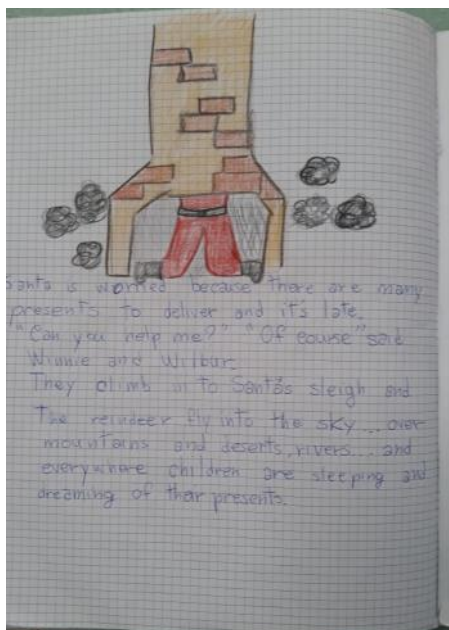 Santa is worried because there are many
presents to deliver and it's late.
"Can you help me?" "Of course" said
Winnie and Wilbur.
They climb in to Santa's sleigh and
the reindeer fly into the sky... over
mountains and deserts, rivers... and
everywhere children are sleeping and
dreaming of thair presents.